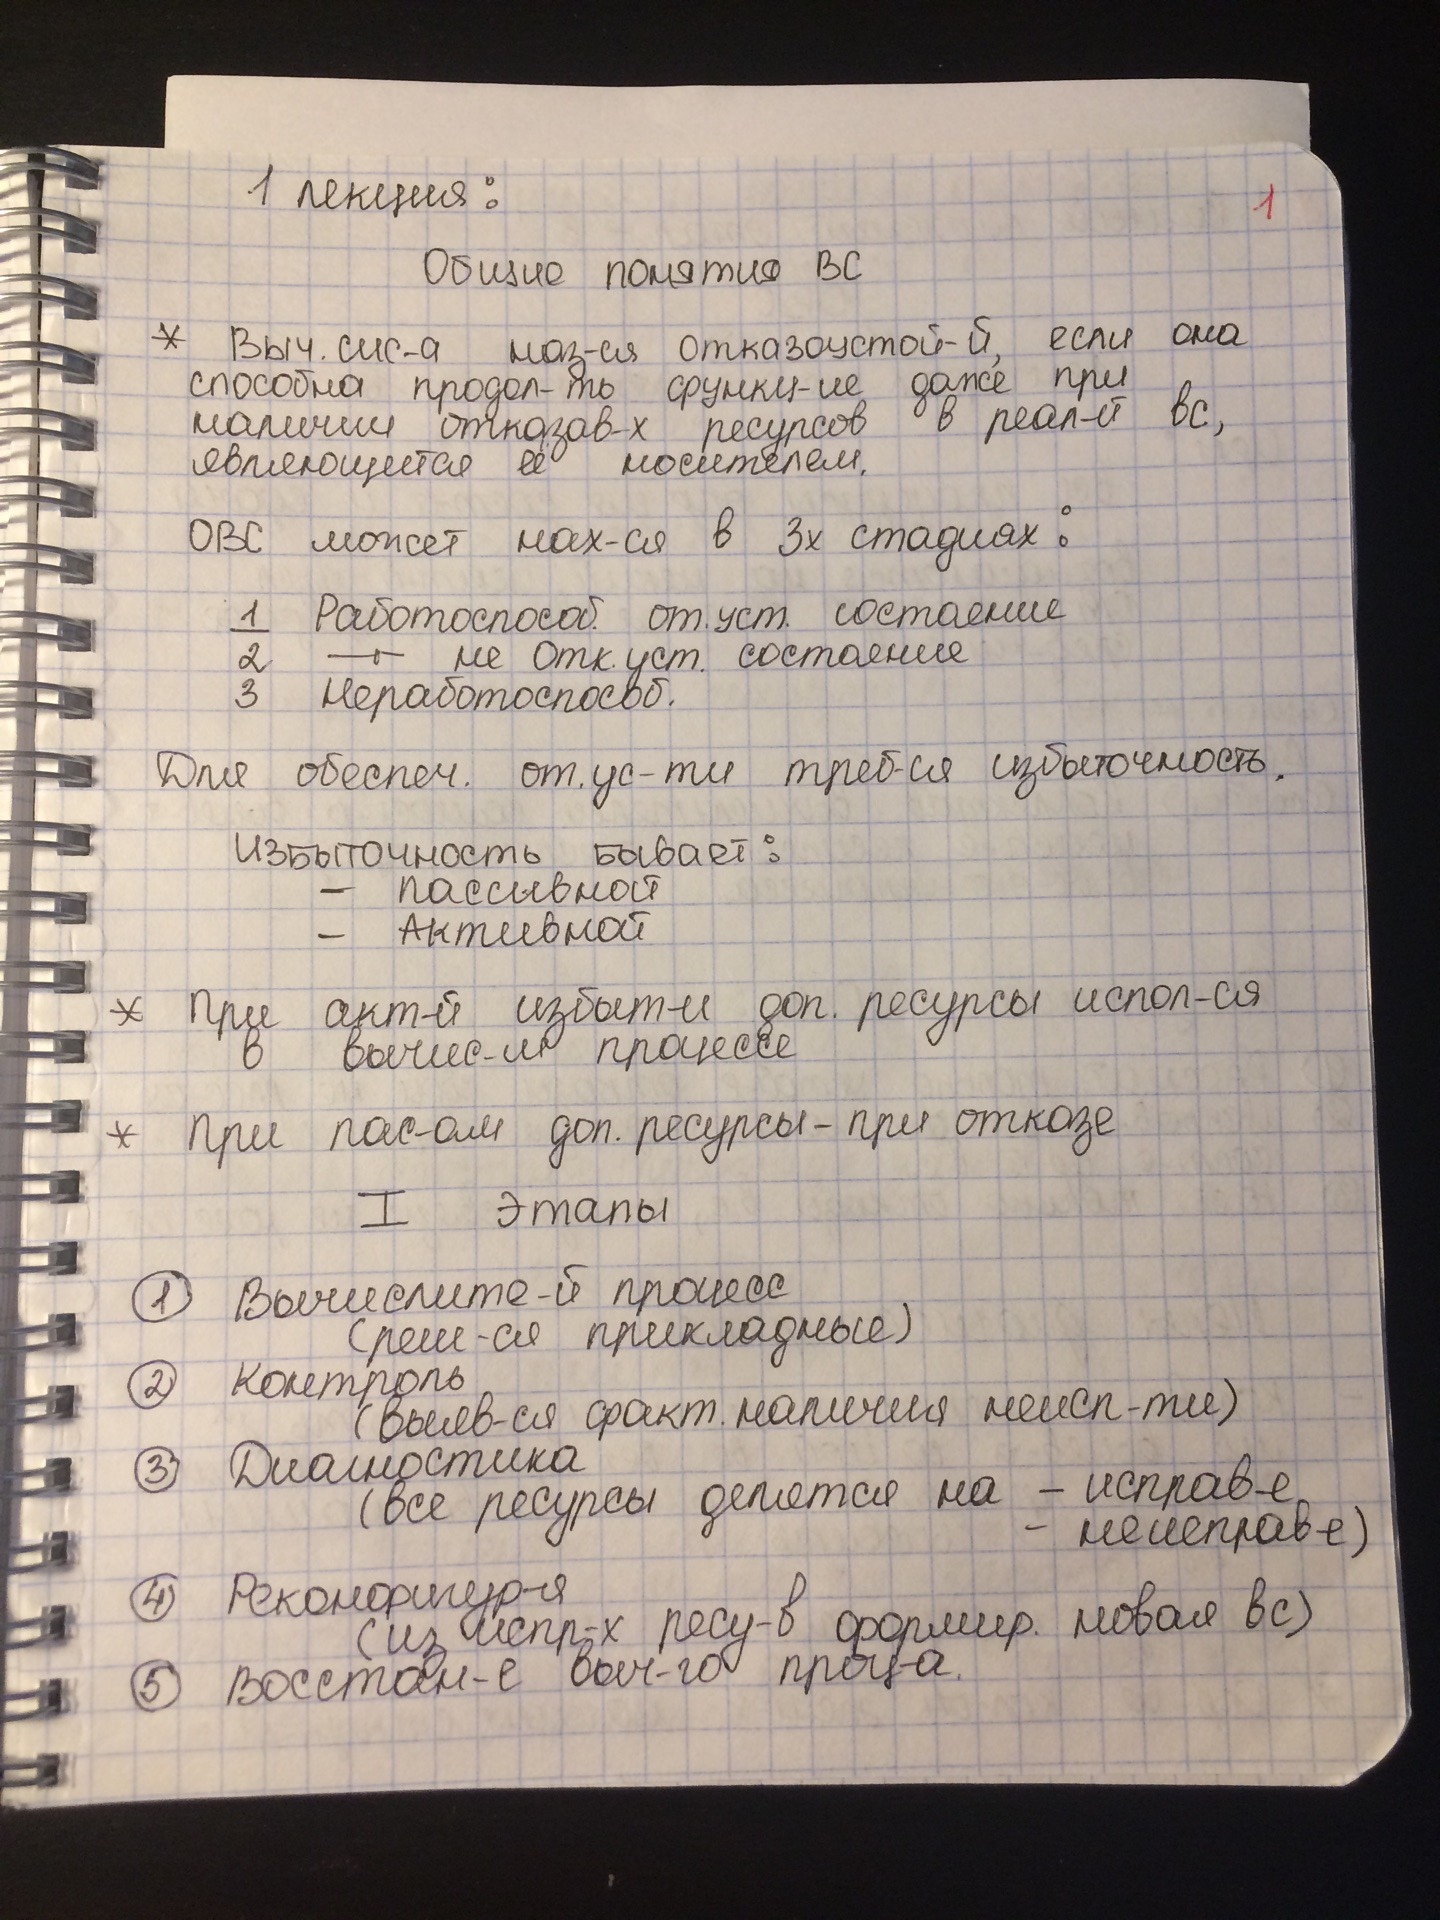 1 лекция:
1
Общие понятия ВС
* Выч. сис-а наз-ся отказоустой-й, если она
способна продол-ть функц-ие даже при
наличии отказав-х ресурсов в реал-й ВС,
являющейся её носителем.
ОВС может нах-ся в 3х стадиях:
1 Работоспособ. от.уст. состаение
2 —"— не отк.уст. состаение
3 Неработоспособ.
Для обеспеч. от.ус-ти треб-ся избыточность.
Избыточность бывает:
- пассивной
- Активной
* При акт-й избыт-и доп. ресурсы испол-ся
в вычис-м процессе
* При пас-ом доп. ресурсы - при отказе
I Этапы
① Вычислите-й процесс
(реш-ся прикладные)
② Контроль
(выяв-ся факт. наличия неисп-ти)
③ Диагностика
(все ресурсы делятся на - исправ-е
- неисправ-е)
④ Реконфигур-я
(из испр-х ресу-в формир. новая ВС)
⑤ Восстан-е выч-го проц-а.